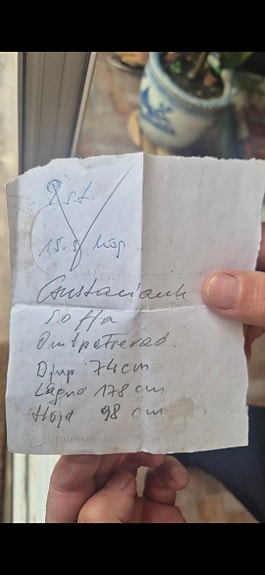 st.
15.5 hög
Gustaviansk
Soffa
Omtpatierad.
Djup 74cm
Längd 178 cm
Höjd 98 cm